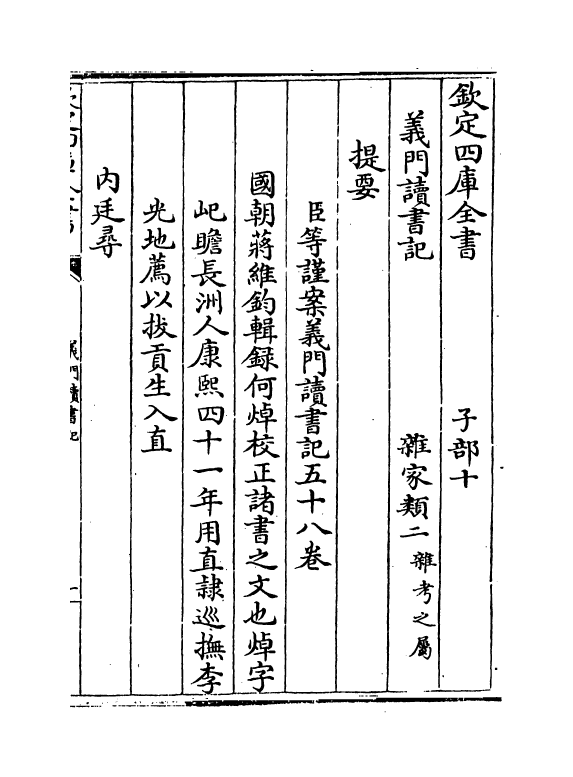 欽定四庫全書　子部十
義門讀書記　雜家類二雜考之屬
提要
臣等謹案義門讀書記五十八卷
國朝蔣維鈞輯録何焯校正諸書之文也焯字
屺瞻長洲人康熙四十一年用直隸巡撫李
光地薦以拔貢生入直
内廷尋
義門讀書記
一